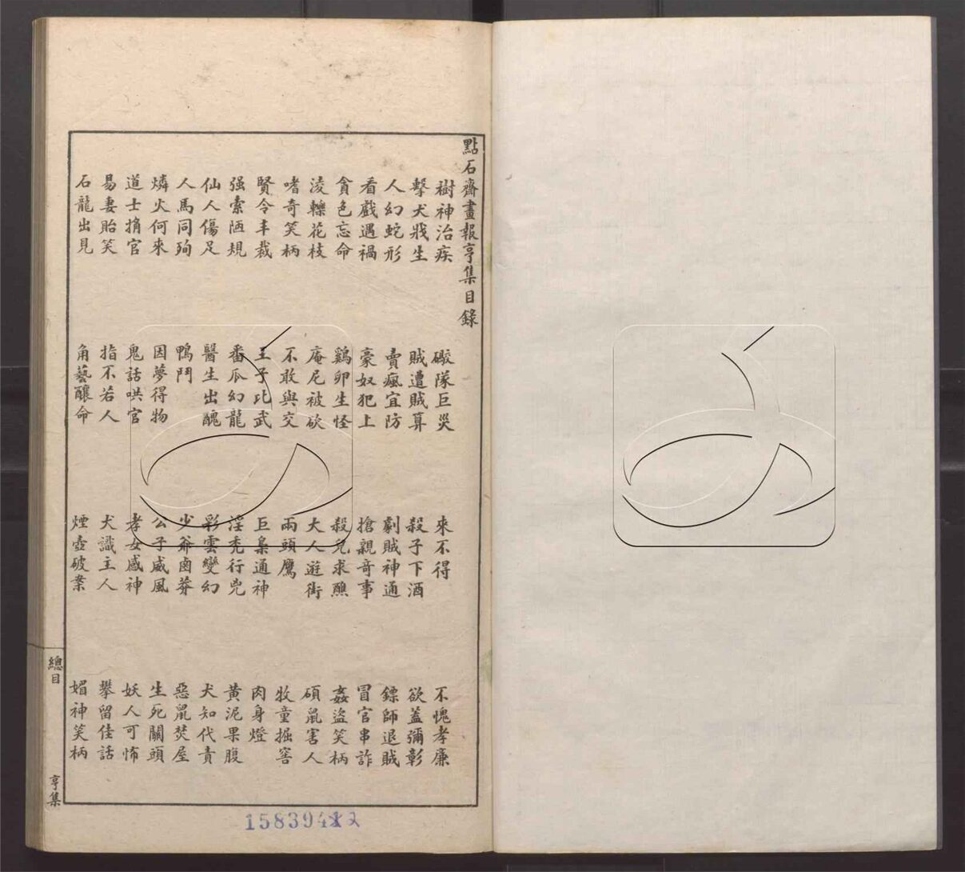 點石齋畫報亨集目錄
樹神治疾 礮隊巨災 來不得 不愧孝廉
擊犬戕生 賊遭賊算 殺子下酒 欲蓋彌彰
人幻蛇形 賣瘋宜防 劇賊神通 鏢師退賊
看戲遇禍 豪奴犯上 搶親奇事 冒官串詐
貪色忘命 鷄卵生怪 殺兒求醮 姦盜笑柄
淩轢花枝 庵尼被砍 大人遊街 碩鼠害人
嗜奇笑柄 不敢與交 兩頭鷹 牧童掘窖
賢令丰裁 王子比武 巨梟通神 肉身燈
强索陋規 番瓜幻龍 淫禿行兇 黄泥果腹
仙人傷足 醫生出醜 彩雲變幻 犬知代責
人馬同殉 鴨鬥 少爺鹵莽 惡鼠焚屋
燐火何來 因夢得物 公子威風 生死關頭
道士捐官 鬼話哄官 孝女感神 妖人可怖
易妻貽笑 指不若人 犬識主人 攀留佳話
石龍出見 角藝釀命 煙壺破案 媚神笑柄
總目
亨集